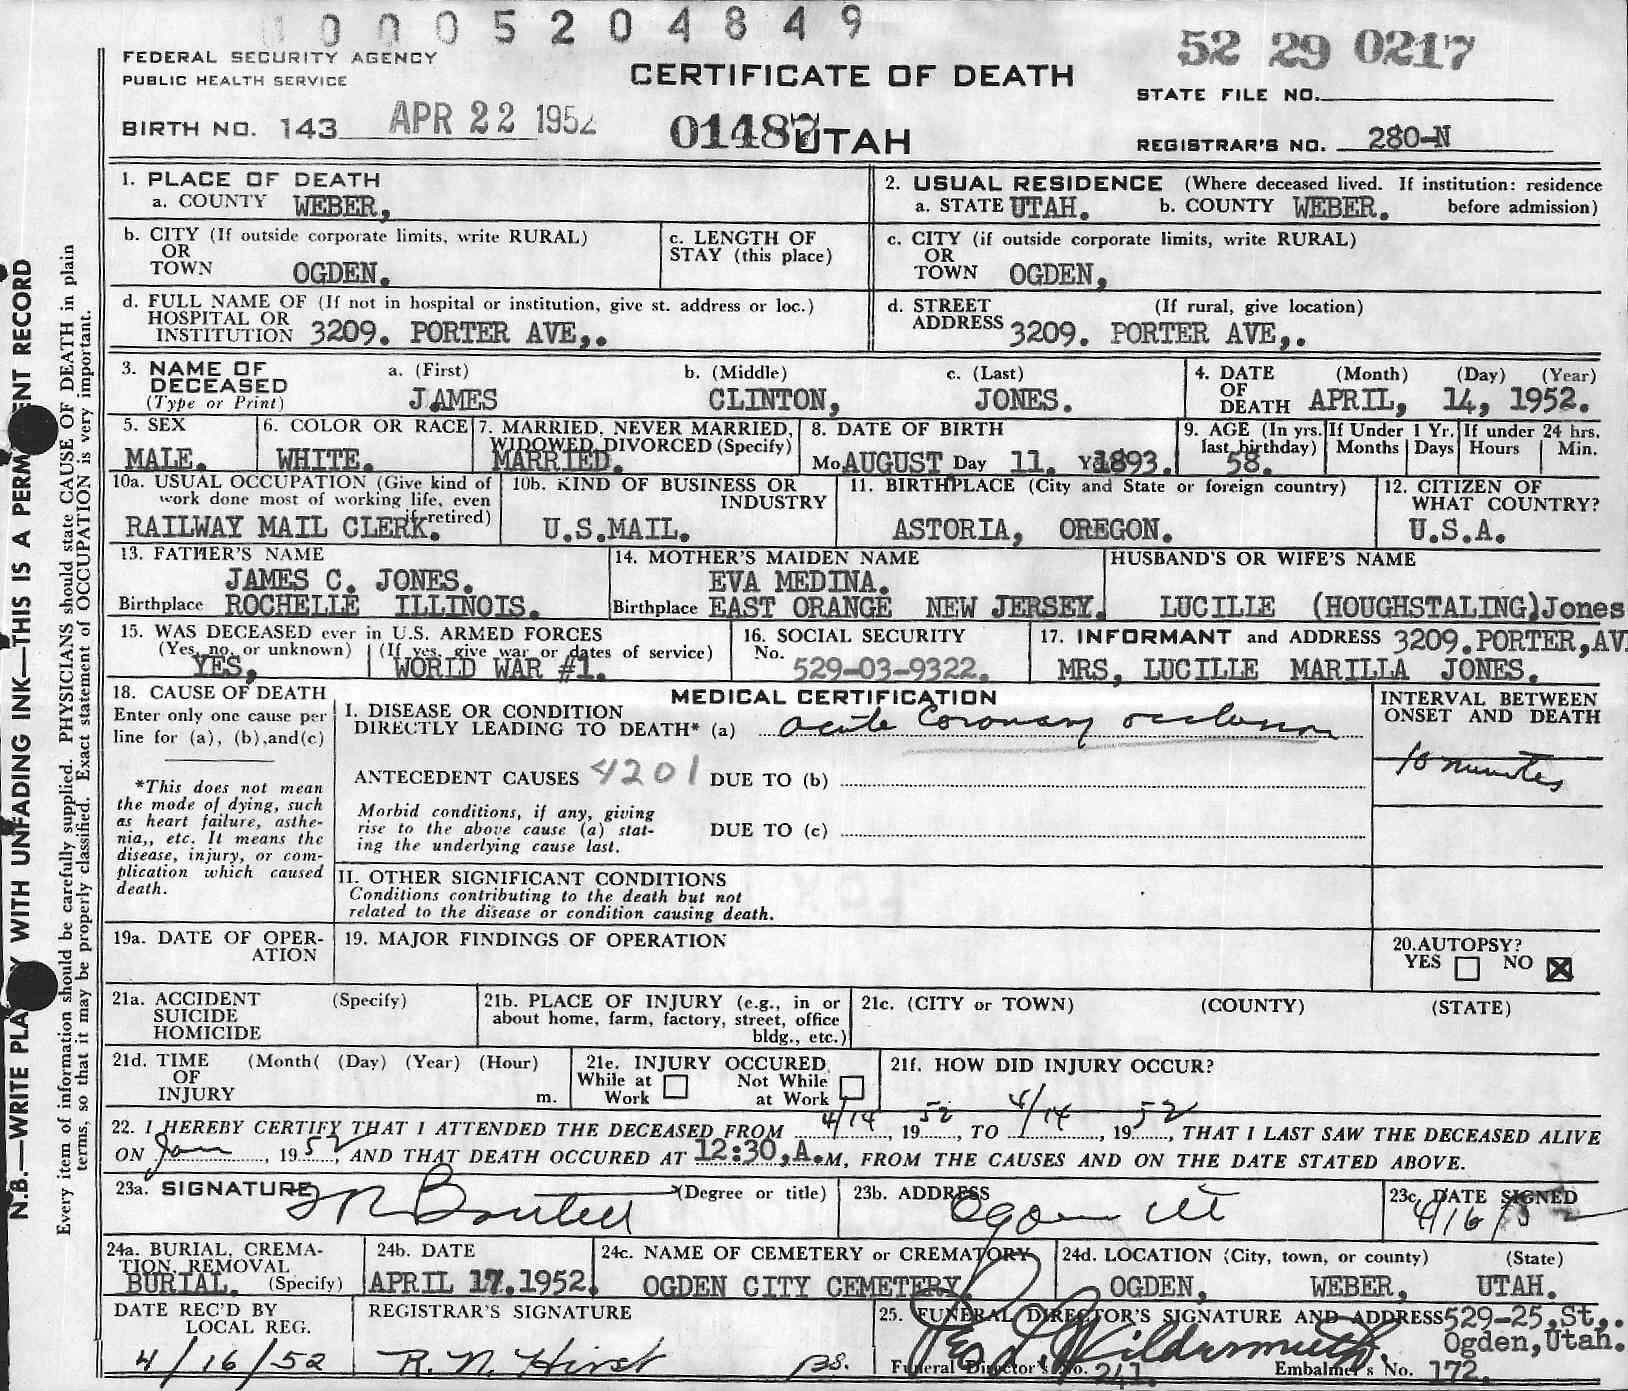 0005204849
FEDERAL SECURITY AGENCY
PUBLIC HEALTH SERVICE
CERTIFICATE OF DEATH
52 29 0217
STATE FILE NO.
BIRTH NO. 143 APR 22 1952
01487 UTAH
REGISTRAR'S NO. 280-N
N.B.—WRITE PLA Y WITH UNFADING INK—THIS IS A PERM ENT RECORD
Every item of information should be carefully supplied. PHYSICIANS should state CAUSE OF DEATH in plain
terms, so that it may be properly classified. Exact statement of OCCUPATION is very important.
1. PLACE OF DEATH
a. COUNTY WEBER,
2. USUAL RESIDENCE (Where deceased lived. If institution: residence
a. STATE UTAH. b. COUNTY WEBER. before admission)
b. CITY (If outside corporate limits, write RURAL)
OR
TOWN OGDEN.
c. LENGTH OF
STAY (this place)
c. CITY (if outside corporate limits, write RURAL)
OR
TOWN OGDEN,
d. FULL NAME OF (If not in hospital or institution, give st. address or loc.)
HOSPITAL OR
INSTITUTION 3209. PORTER AVE,.
d. STREET (If rural, give location)
ADDRESS 3209. PORTER AVE,.
3. NAME OF a. (First) b. (Middle) c. (Last)
DECEASED
(Type or Print) JAMES CLINTON, JONES.
4. DATE (Month) (Day) (Year)
OF
DEATH APRIL, 14, 1952.
5. SEX
MALE.
6. COLOR OR RACE
WHITE.
7. MARRIED, NEVER MARRIED,
WIDOWED, DIVORCED (Specify)
MARRIED.
8. DATE OF BIRTH
Mo. AUGUST Day 11. Y 1893.
9. AGE (In yrs.
last birthday)
58.
If Under 1 Yr.
Months Days
If under 24 hrs.
Hours Min.
10a. USUAL OCCUPATION (Give kind of
work done most of working life, even
if retired)
RAILWAY MAIL CLERK.
10b. KIND OF BUSINESS OR
INDUSTRY
U.S.MAIL.
11. BIRTHPLACE (City and State or foreign country)
ASTORIA, OREGON.
12. CITIZEN OF
WHAT COUNTRY?
U.S.A.
13. FATHER'S NAME
JAMES C. JONES.
Birthplace ROCHELLE ILLINOIS.
14. MOTHER'S MAIDEN NAME
EVA MEDINA.
Birthplace EAST ORANGE NEW JERSEY.
HUSBAND'S OR WIFE'S NAME
LUCILLE (HOUGHSTALING)Jones
15. WAS DECEASED ever in U.S. ARMED FORCES
(Yes, no, or unknown) (If yes, give war or dates of service)
YES, WORLD WAR #1.
16. SOCIAL SECURITY
No.
529-03-9322.
17. INFORMANT and ADDRESS 3209.PORTER,AV.
MRS, LUCILLE MARILLA JONES.
18. CAUSE OF DEATH
Enter only one cause per
line for (a), (b),and(c)
*This does not mean
the mode of dying, such
as heart failure, asthe-
nia,, etc. It means the
disease, injury, or com-
plication which caused
death.
MEDICAL CERTIFICATION
I. DISEASE OR CONDITION
DIRECTLY LEADING TO DEATH* (a) acute coronary occlusion
ANTECEDENT CAUSES 4201 DUE TO (b)
Morbid conditions, if any, giving
rise to the above cause (a) stat-
ing the underlying cause last.
DUE TO (c)
II. OTHER SIGNIFICANT CONDITIONS
Conditions contributing to the death but not
related to the disease or condition causing death.
INTERVAL BETWEEN
ONSET AND DEATH
10 minutes
19a. DATE OF OPER-
ATION
19. MAJOR FINDINGS OF OPERATION
20.AUTOPSY?
YES NO
21a. ACCIDENT (Specify)
SUICIDE
HOMICIDE
21b. PLACE OF INJURY (e.g., in or
about home, farm, factory, street, office
bldg., etc.)
21c. (CITY or TOWN) (COUNTY) (STATE)
21d. TIME (Month( (Day) (Year) (Hour)
OF
INJURY m.
21e. INJURY OCCURED
While at Not While
Work at Work
21f. HOW DID INJURY OCCUR?
22. I HEREBY CERTIFY THAT I ATTENDED THE DECEASED FROM 4/14, 1952, TO 4/14, 1952, THAT I LAST SAW THE DECEASED ALIVE
ON Jan, 1952, AND THAT DEATH OCCURED AT 12:30,A.M, FROM THE CAUSES AND ON THE DATE STATED ABOVE.
23a. SIGNATURE (Degree or title)
23b. ADDRESS
Ogden
23c. DATE SIGNED
4/16/52
24a. BURIAL, CREMA-
TION, REMOVAL
BURIAL. (Specify)
24b. DATE
APRIL 17.1952.
24c. NAME OF CEMETERY or CREMATORY
OGDEN CITY CEMETERY.
24d. LOCATION (City, town, or county) (State)
OGDEN, WEBER, UTAH.
DATE REC'D BY
LOCAL REG.
4/16/52
REGISTRAR'S SIGNATURE
R. N. Hirst
25. FUNERAL DIRECTOR'S SIGNATURE AND ADDRESS 529-25,St,.
Ogden,Utah.
Funeral Director's No. 241. Embalmer's No. 172.